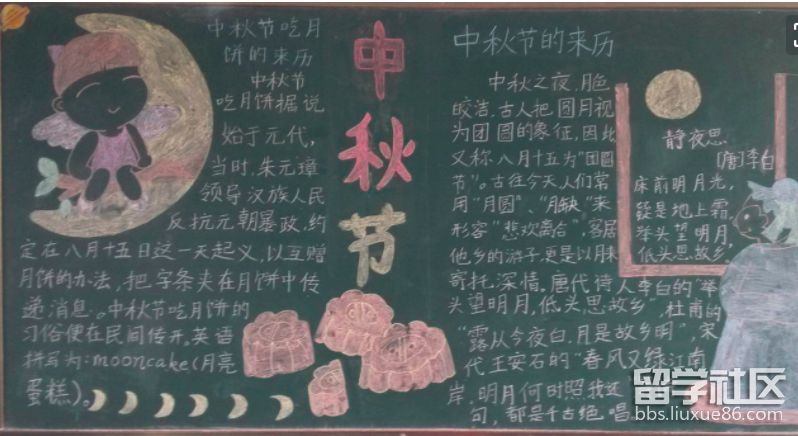 中秋节吃月
饼的来历
中秋节
吃月饼据说
始于元代，
当时，朱元璋
领导汉族人民
反抗元朝暴政，约
定在八月十五日这一天起义，以互赠
月饼的办法，把字条夹在月饼中传
递消息。中秋节吃月饼的
习俗便在民间传开。英语
拼写为：mooncake（月亮
蛋糕）。
中
秋
节
中秋节的来历
中秋之夜，月色
皎洁，古人把圆月视
为团圆的象征，因此
又称八月十五为“团圆
节”。古往今天人们常
用“月圆”、“月缺”来
形容“悲欢离合”，客居
他乡的游子，更是以月来
寄托深情。唐代诗人李白的“举
头望明月，低头思故乡”，杜甫的
“露从今夜白，月是故乡明”，宋
代王安石的“春风又绿江南
岸，明月何时照我还
句，都是千古绝唱
静夜思
[唐]李白
床前明月光，
疑是地上霜
举头望明月，
低头思故乡，
留学社区
bbs.liuxue86.com